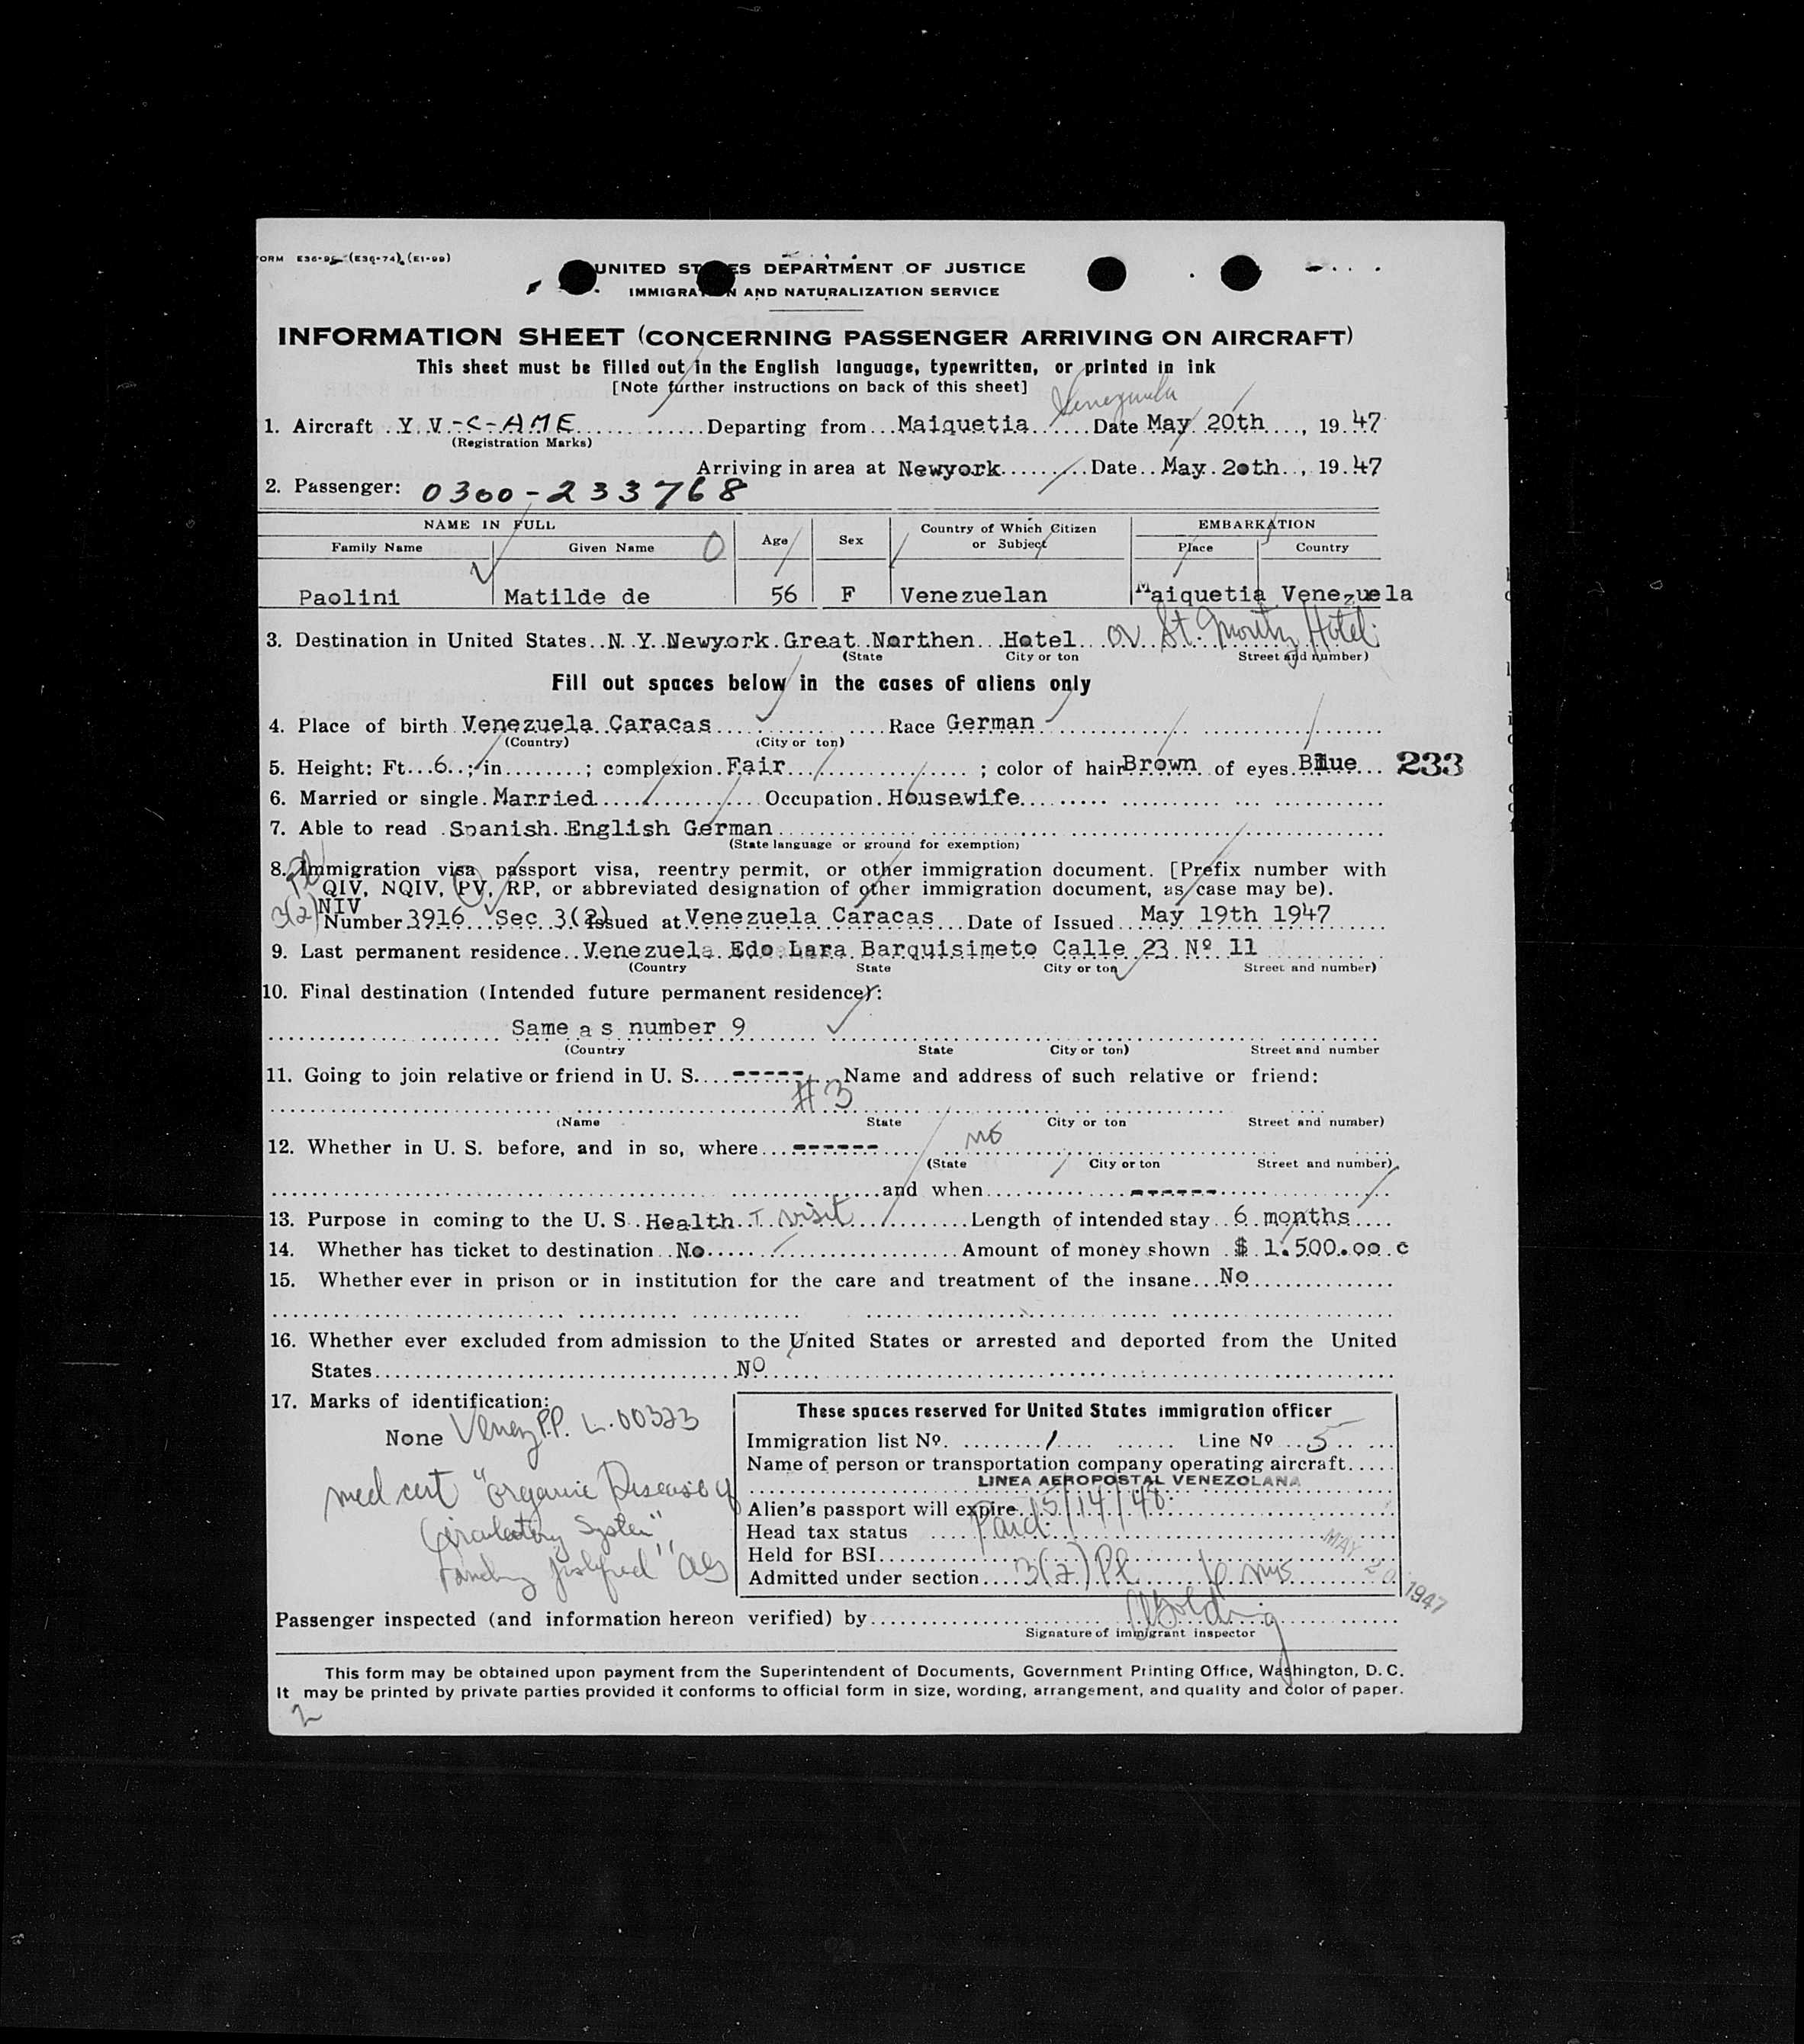 FORM E36-95 (E36-74) (E1-99)
UNITED STATES DEPARTMENT OF JUSTICE
IMMIGRATION AND NATURALIZATION SERVICE
INFORMATION SHEET (CONCERNING PASSENGER ARRIVING ON AIRCRAFT)
This sheet must be filled out in the English language, typewritten, or printed in ink
[Note further instructions on back of this sheet]
Venezuela
1. Aircraft Y V-C-AME Departing from Maiquetia Date May 20th, 1947
(Registration Marks)
Arriving in area at Newyork Date May 20th, 1947
2. Passenger: 0300-233768
NAME IN FULL Age Sex Country of Which Citizen or Subject EMBARKATION
Family Name Given Name 0 Place Country
Paolini Matilde de 56 F Venezuelan Maiquetia Venezuela
3. Destination in United States N Y Newyork Great Northen Hotel or St. Moritz Hotel
(State City or ton Street and number)
Fill out spaces below in the cases of aliens only
4. Place of birth Venezuela Caracas Race German
(Country) (City or ton)
5. Height: Ft 6 ; in ; complexion Fair ; color of hair Brown of eyes Blue 233
6. Married or single Married Occupation Housewife
7. Able to read Spanish English German
(State language or ground for exemption)
8. Immigration visa passport visa, reentry permit, or other immigration document. [Prefix number with
QIV, NQIV, PV, RP, or abbreviated designation of other immigration document, as case may be).
3(2) NIV
Number 3916 Sec 3(2) Issued at Venezuela Caracas Date of Issued May 19th 1947
9. Last permanent residence Venezuela Edo Lara Barquisimeto Calle 23 Nº 11
(Country State City or ton Street and number)
10. Final destination (Intended future permanent residence):
Same as number 9
(Country State City or ton) Street and number
11. Going to join relative or friend in U. S. ----- Name and address of such relative or friend:
#3
(Name State City or ton Street and number)
12. Whether in U. S. before, and in so, where ------ no
(State City or ton Street and number)
and when ------
13. Purpose in coming to the U. S. Health + visit Length of intended stay 6 months
14. Whether has ticket to destination No Amount of money shown $ 1.500.00 c
15. Whether ever in prison or in institution for the care and treatment of the insane No
16. Whether ever excluded from admission to the United States or arrested and deported from the United
States NO
17. Marks of identification:
None Venez P.P. L.00323
med cert "Organic Disease of
Circulatory System"
Landing justified"
These spaces reserved for United States immigration officer
Immigration list Nº. 1 Line Nº 5
Name of person or transportation company operating aircraft
LINEA AEROPOSTAL VENEZOLANA
Alien's passport will expire 5/14/48
Head tax status Paid
Held for BSI
Admitted under section 3(2) Pl 6 mos
MAY 20 1947
Passenger inspected (and information hereon verified) by
Signature of immigrant inspector
This form may be obtained upon payment from the Superintendent of Documents, Government Printing Office, Washington, D. C.
It may be printed by private parties provided it conforms to official form in size, wording, arrangement, and quality and color of paper.
2